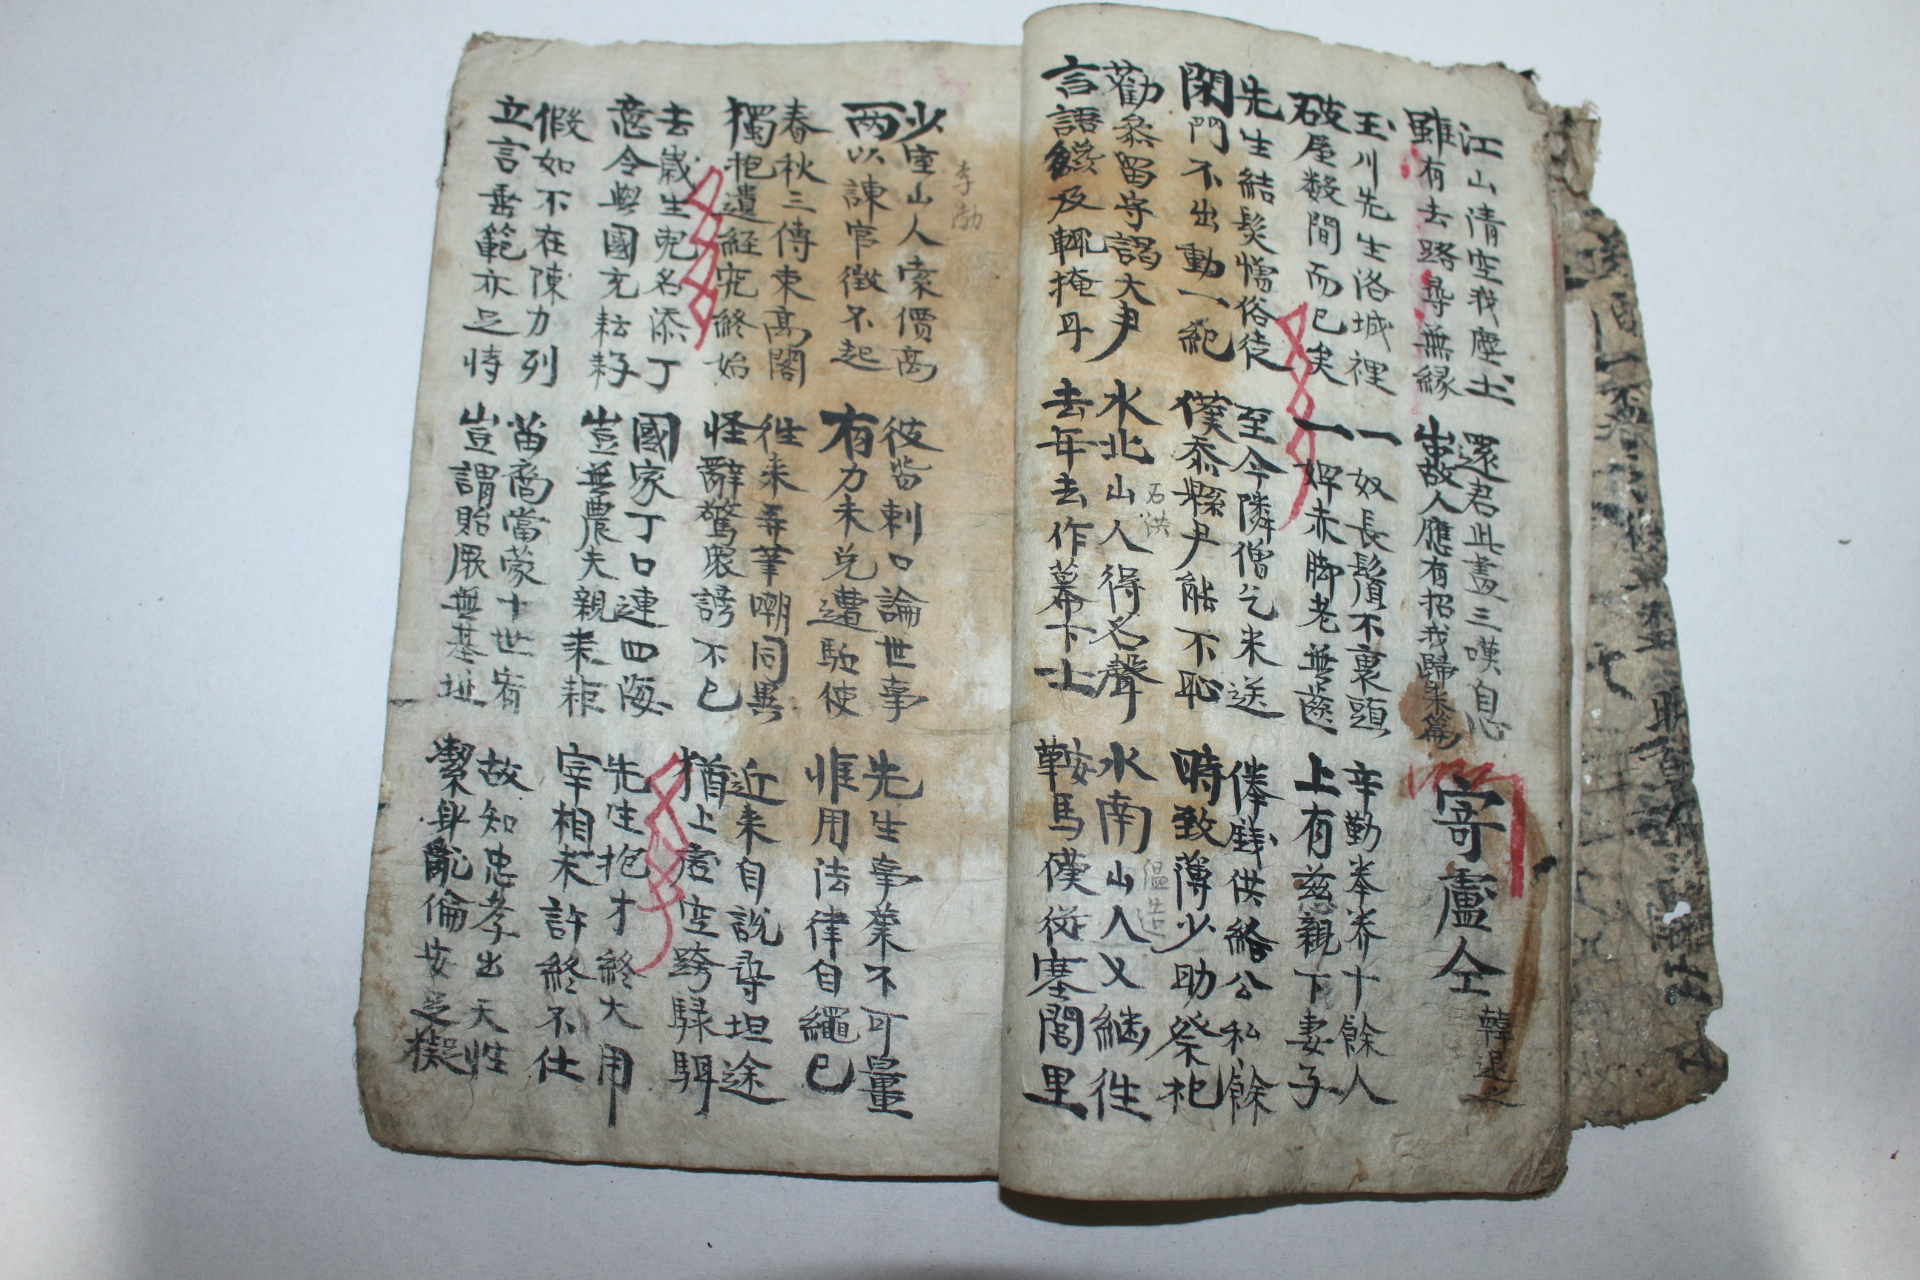 江山清空我塵土
雖有去路尋無緣
還君此畫三嘆息
山中故人應有招我歸來篇
寄盧仝 韓退之
玉川先生洛城裡
破屋數間而已矣
一奴長鬚不裹頭
一婢赤脚老無齒
辛勤奉养十餘人
上有慈親下妻子
先生結髮憎俗徒
閉門不出動一紀
至今隣僧乞米送
僕忝縣尹能不恥
俸錢供給公私餘
時致薄少助祭祀
勸參留守謁大尹
言語纔及輒掩耳
水北山人得名聲
石洪
去年去作幕下士
水南山人又継徃
温造
鞍馬僕從塞閭里
少室山人索價高
李渤
两以諫官徵不起
彼皆刺口論世事
有力未免遭駈使
先生事業不可量
惟用法律自繩已
春秋三傳束高閣
獨抱遺経究終始
徃来弄筆嘲同異
怪辭驚衆謗不已
近来自説尋坦途
猶上虛空跨騄駬
去歲生兒名添丁
意令與國充耘耔
國家丁口連四海
豈無農夫親耒耜
先生抱才終大用
宰相未許終不仕
假如不在陳力列
立言垂範亦足恃
苗裔當蒙十世宥
豈謂貽厥無基址
故知忠孝出天性
潔身亂倫安足擬